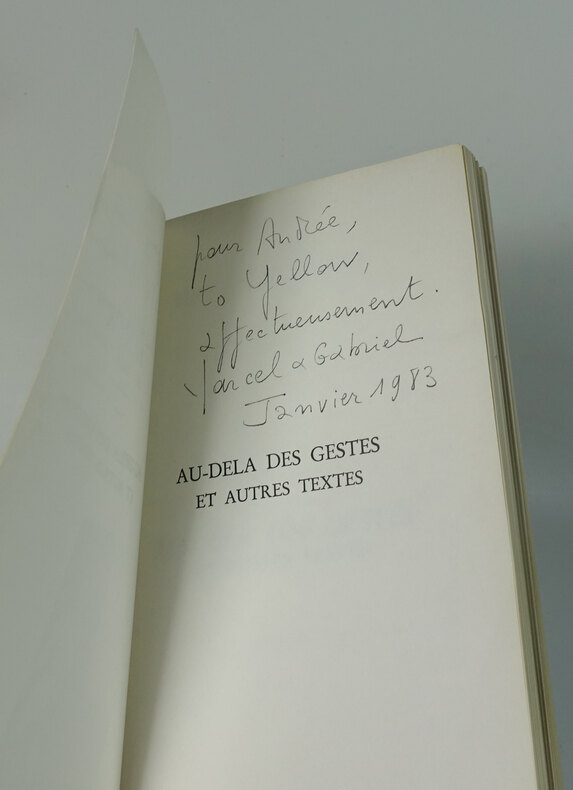 pour Andrée,
to Yellow,
affectueusement.
Marcel & Gabriel
Janvier 1983
AU-DELA DES GESTES
ET AUTRES TEXTES